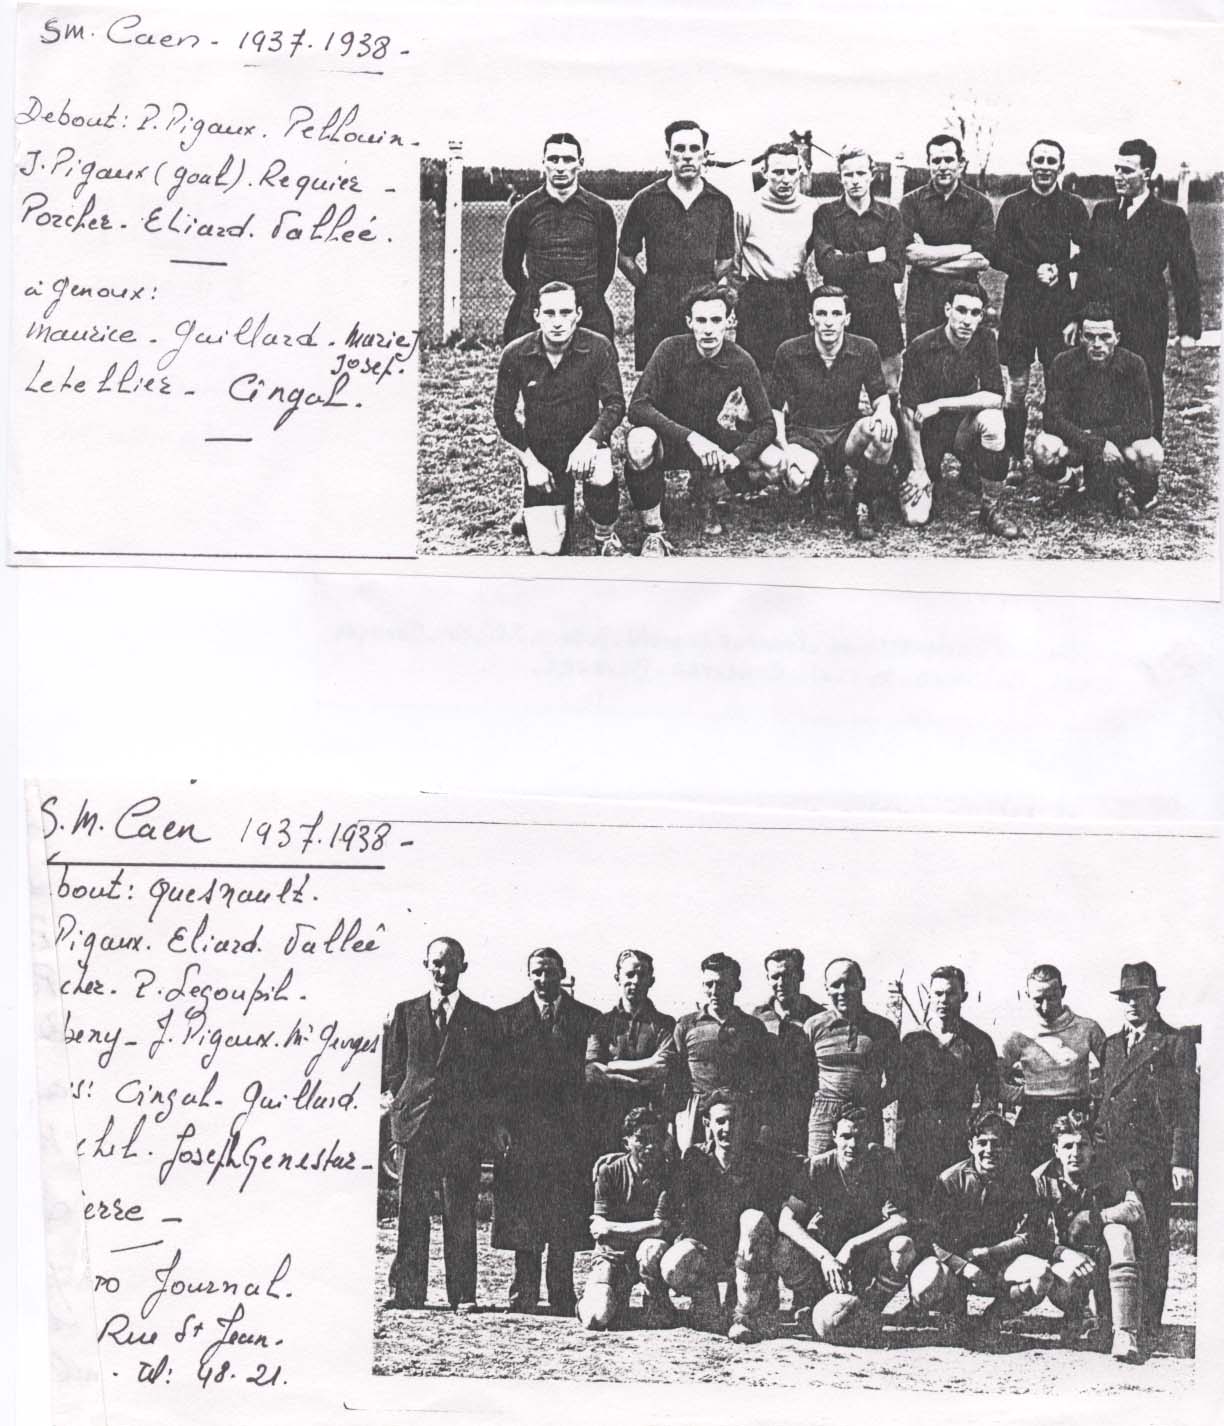 SM. Caen - 1937.1938 -
Debout: P. Pigaux. Pellouin -
J. Pigaux (goal). Requier -
Porcher. Eliard. Vallée.
à Genoux:
Maurice - Guillard. Marie J
Josef.
Letellier - Cingal.
S.M. Caen 1937.1938 -
bout: Quesnault.
Pigaux. Eliard. Vallée
cher. P. Legoupil.
beny - J. Pigaux. Mr Georges
is: Cingal - Guillard.
chel. Joseph Genestar -
ierre -
ro Journal.
Rue St Jean.
. Tél: 48.21.